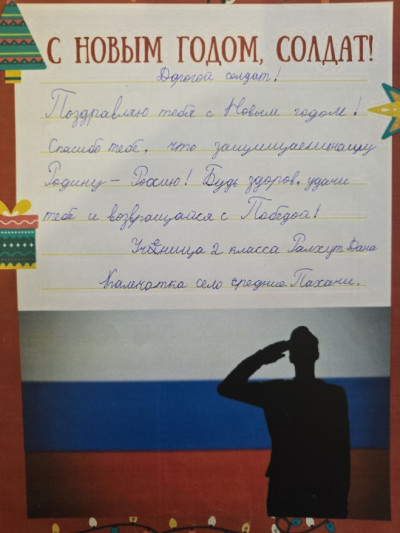 С НОВЫМ ГОДОМ, СОЛДАТ!
Дорогой солдат!
Поздравляю тебя с Новым годом!
Спасибо тебе, что защищаешь нашу
Родину – Россию! Будь здоров, удачи
тебе и возвращайся с Победой!
Ученица 2 класса Ралхут Дана
Камчатка село средние Пахачи.